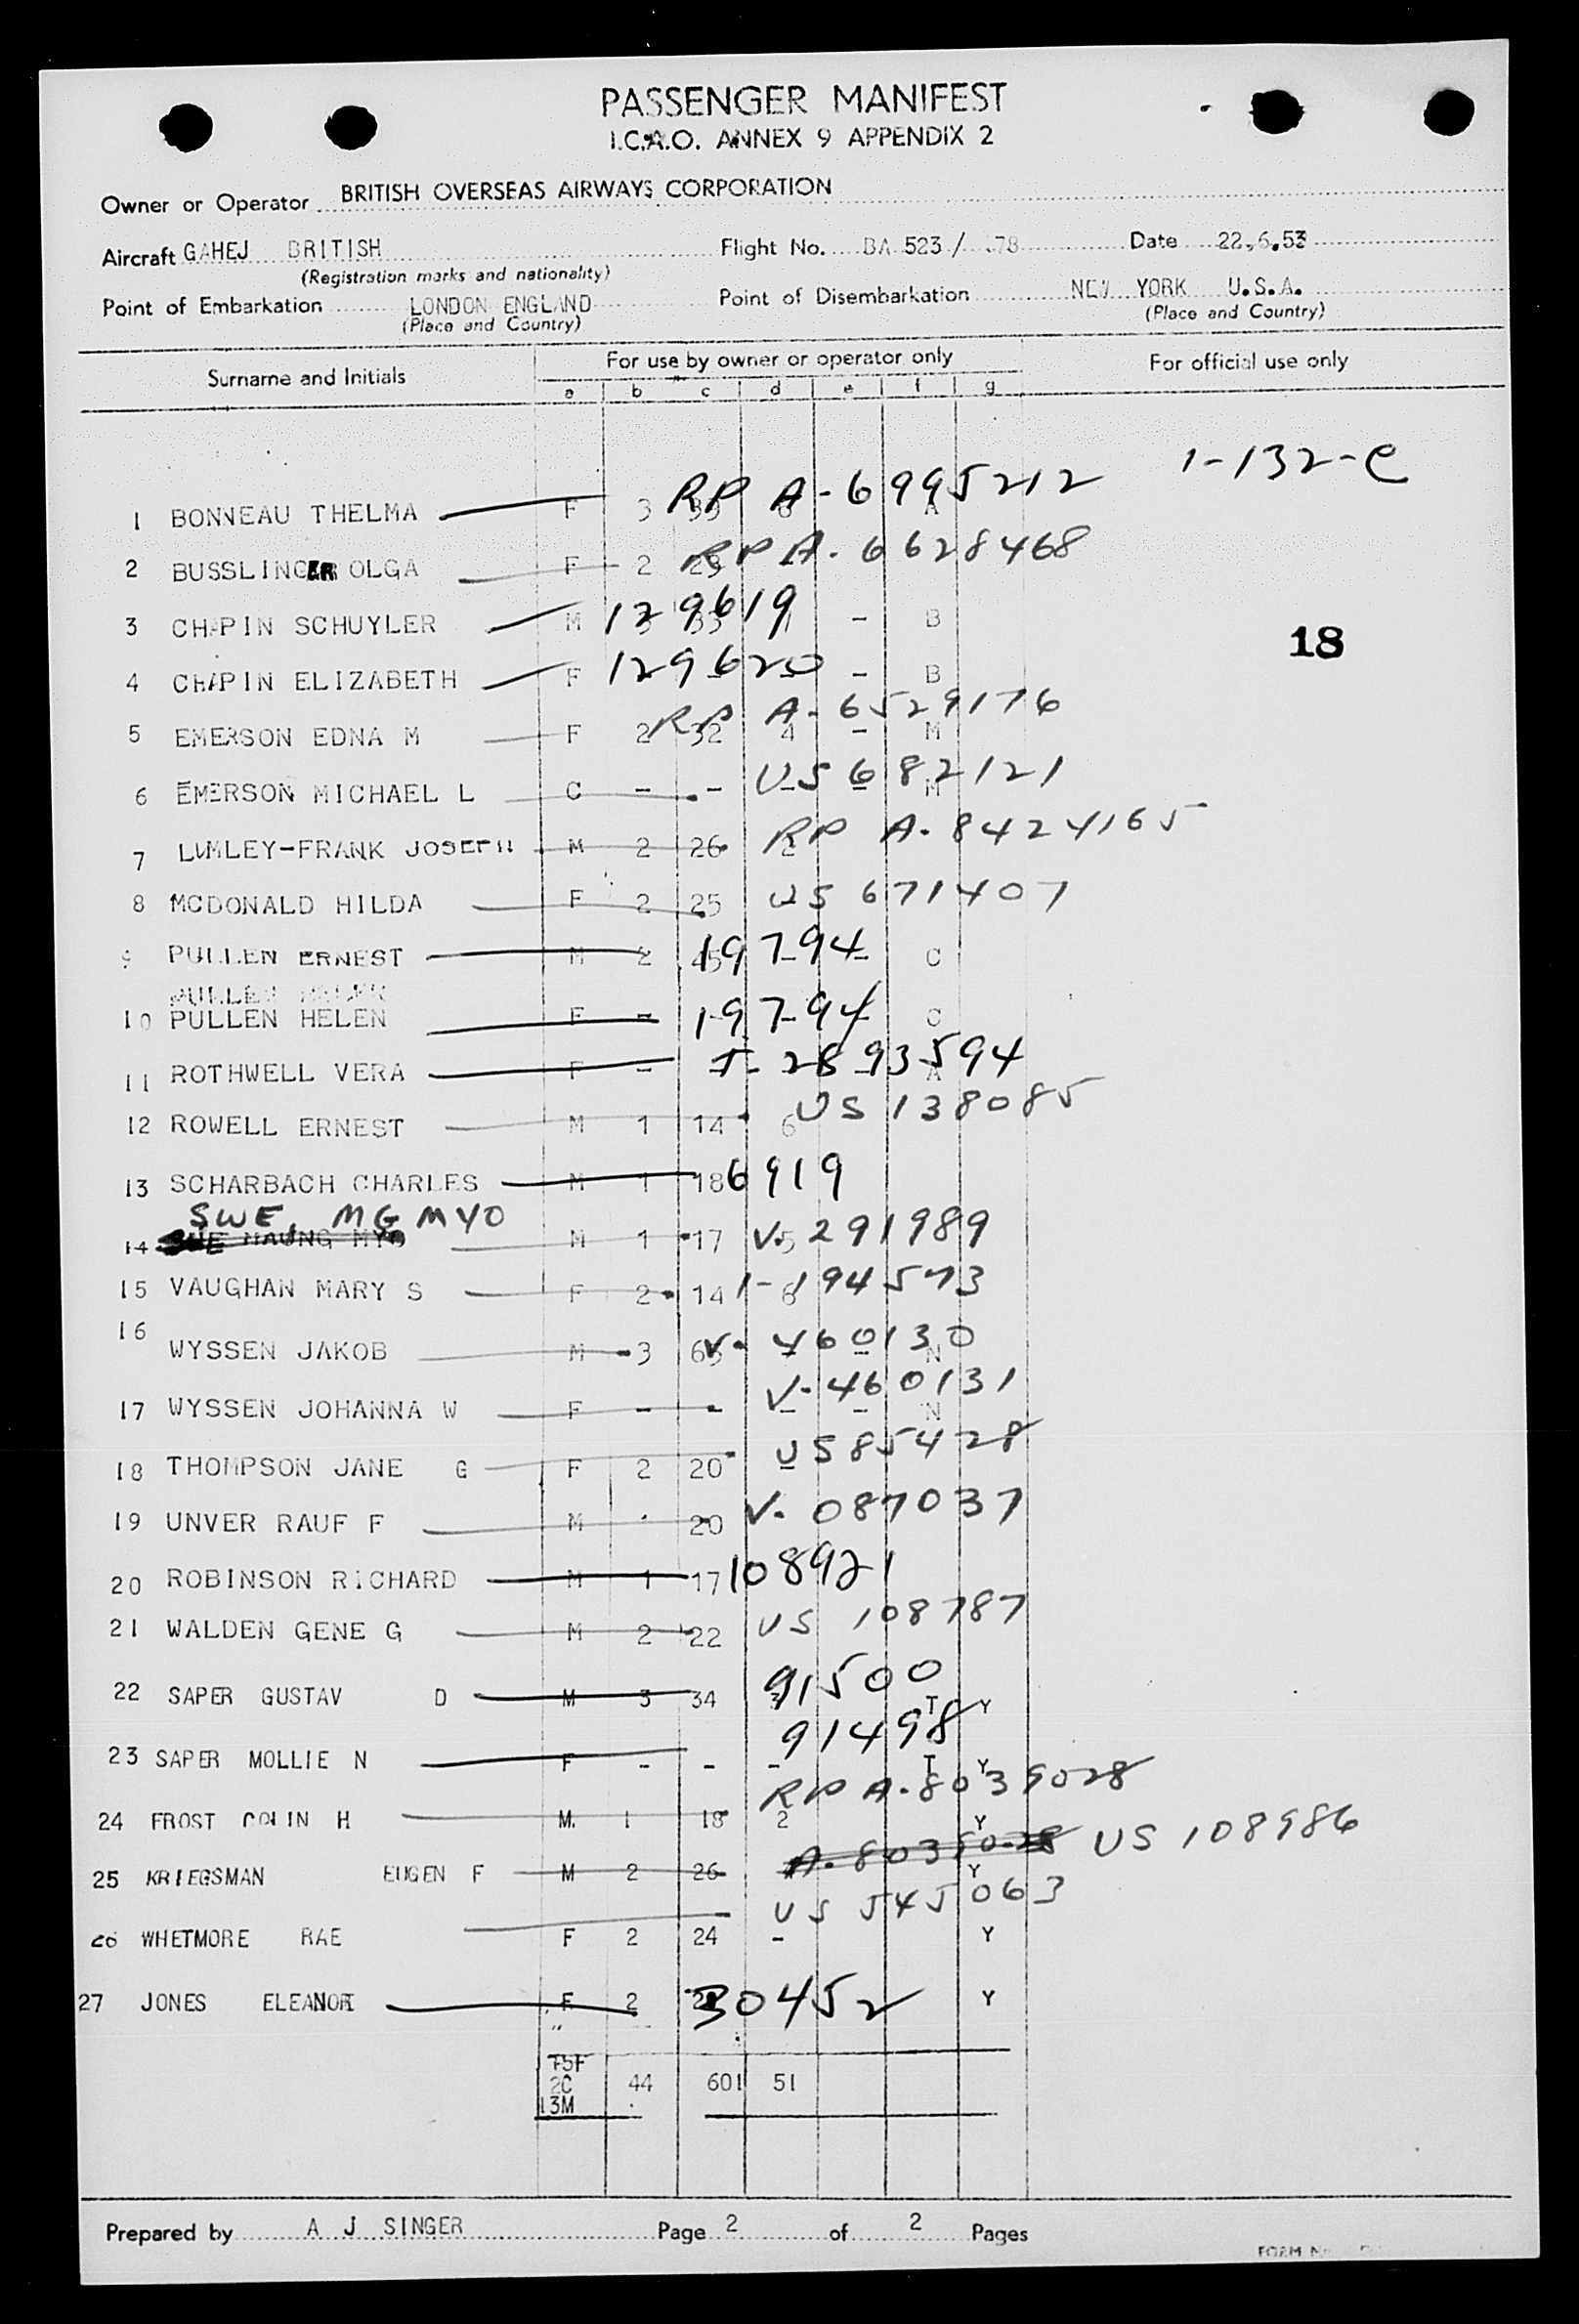 PASSENGER MANIFEST
I.C.A.O. ANNEX 9 APPENDIX 2
Owner or Operator BRITISH OVERSEAS AIRWAYS CORPORATION
Aircraft GAHEJ BRITISH Flight No. BA 523/ 78 Date 22.6.53
(Registration marks and nationality)
Point of Embarkation LONDON ENGLAND Point of Disembarkation NEW YORK U.S.A.
(Place and Country) (Place and Country)
Surname and Initials For use by owner or operator only For official use only
a b c d e f g
1-132-C
1 BONNEAU THELMA F 3 RP A-6995212 A
2 BUSSLINGER OLGA F 2 RP A-6628468
3 CHAPIN SCHUYLER M 129619 - B
18
4 CHAPIN ELIZABETH F 129620 - B
5 EMERSON EDNA M F 2 32 4 - M RP A-6529176
6 EMERSON MICHAEL L C - - - - M US 682121
7 LUMLEY-FRANK JOSEPH M 2 26 2 RP A-8424165
8 MCDONALD HILDA F 2 25 US 671407
9 PULLEN ERNEST M 2 45 - - C 19794
PULLEN HELEN
10 PULLEN HELEN F - - - - C 19794
11 ROTHWELL VERA F - - - - A T-2893594
12 ROWELL ERNEST M 1 14 6 US 138085
13 SCHARBACH CHARLES M 1 18 6919
SWE, MG MYO
14 SWE MAUNG MYO M 1 17 5 V-291989
15 VAUGHAN MARY S F 2 14 6 1-194573
16 WYSSEN JAKOB M 3 65 - - N V-460130
17 WYSSEN JOHANNA W F - - - - N V-460131
18 THOMPSON JANE G F 2 20 - US 85428
19 UNVER RAUF F M 20 V-087037
20 ROBINSON RICHARD M 1 17 108921
21 WALDEN GENE G M 2 22 US 108787
22 SAPER GUSTAV D M 3 34 91500 T Y
23 SAPER MOLLIE N F - - - 91498 T Y
24 FROST COLIN H M. 1 18 2 Y RP A-8039028
25 KRIEGSMAN EUGEN F M 2 26 Y A-8039028 US 108986
26 WHETMORE RAE F 2 24 - Y US 545063
27 JONES ELEANOR F 2 30452 Y
15F
2C 44 601 51
13M
Prepared by A J SINGER Page 2 of 2 Pages
FORM